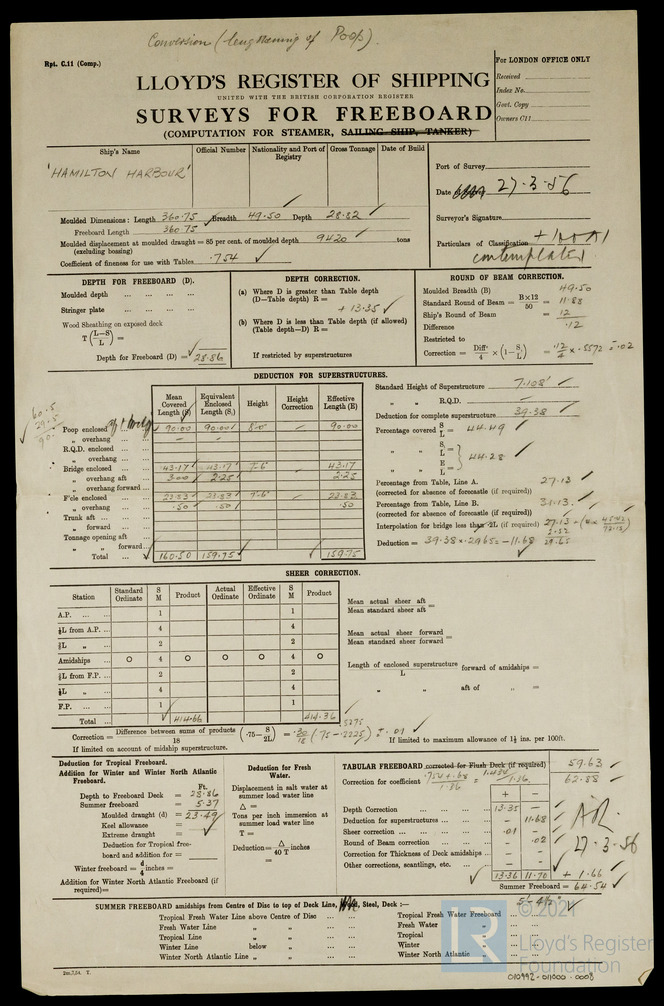 Conversion (lengthening of Poop).
Rpt. C.11 (Comp.)
For LONDON OFFICE ONLY
Received
Index No.
Govt. Copy
Owners C11
LLOYD'S REGISTER OF SHIPPING
UNITED WITH THE BRITISH CORPORATION REGISTER
SURVEYS FOR FREEBOARD
(COMPUTATION FOR STEAMER, SAILING SHIP, TANKER)
Ship's Name Official Number Nationality and Port of Registry Gross Tonnage Date of Build
'HAMILTON HARBOUR'
Port of Survey
Date of Survey 27·3·56
Surveyor's Signature
Particulars of Classification + 100A1
contemplated
Moulded Dimensions: Length 360·75 Breadth 49·50 Depth 28·82
Freeboard Length 360·75
Moulded displacement at moulded draught = 85 per cent. of moulded depth 9420 tons
(excluding bossing)
Coefficient of fineness for use with Tables ·754
DEPTH FOR FREEBOARD (D).
Moulded depth
Stringer plate
Wood Sheathing on exposed deck
T (L-S/L) =
Depth for Freeboard (D) = 28·86
DEPTH CORRECTION.
(a) Where D is greater than Table depth
(D—Table depth) R =
+ 13·35
(b) Where D is less than Table depth (if allowed)
(Table depth—D) R =
If restricted by superstructures
ROUND OF BEAM CORRECTION.
Moulded Breadth (B) 49·50
Standard Round of Beam = B×12/50 = 11·88
Ship's Round of Beam = 12
Difference ·12
Restricted to
Correction = Diff/4 × (1-S/L) = ·12/4 × ·5572 = ·02
DEDUCTION FOR SUPERSTRUCTURES.
60·5
29·5
90·
Mean Covered Length (S) Equivalent Enclosed Length (S₁) Height Height Correction Effective Length (E)
Poop enclosed 90·00 90·00 8'·0" - 90·00
„ overhang - -
R.Q.D. enclosed
„ overhang
Bridge enclosed 43·17 43·17 7'·6" 43·17
„ overhang aft 3·00 2·25 2·25
„ overhang forward
F'cle enclosed 23·83 23·83 7'·6" 23·83
„ overhang ·50 ·50 ·50
Trunk aft
„ forward
Tonnage opening aft
„ „ forward
Total 160·50 159·75 159·75
Standard Height of Superstructure 7·108'
„ „ R.Q.D. -
Deduction for complete superstructure 39·38
Percentage covered S/L = 44·49
„ „ S₁/L =
„ „ E/L = 44·28
Percentage from Table, Line A. 27·13
(corrected for absence of forecastle (if required)
Percentage from Table, Line B. 31·13
(corrected for absence of forecastle (if required)
Interpolation for bridge less than ·2L (if required) 27·13 +
2·52
29·65
Deduction = 39·38 × ·2965 = -11·68
SHEER CORRECTION.
Station Standard Ordinate S M Product Actual Ordinate Effective Ordinate S M Product
A.P. 1 1
⅙L from A.P. 4 4
⅓L „ 2 2
Amidships 0 4 0 0 0 4 0
⅓L from F.P. 2 2
⅙L „ 4 4
F.P. 1 1
Total 414·66 414·36
Mean actual sheer aft / Mean standard sheer aft =
Mean actual sheer forward / Mean standard sheer forward =
Length of enclosed superstructure / L forward of amidships =
„ „ aft of „ =
Correction = Difference between sums of products/18 (·75 - S/2L) = ·30/18 (·75 - ·2225) = ·01
·5275
If limited to maximum allowance of 1½ ins. per 100ft.
If limited on account of midship superstructure.
Deduction for Tropical Freeboard.
Addition for Winter and Winter North Atlantic Freeboard.
Ft.
Depth to Freeboard Deck = 28·86
Summer freeboard = 5·37
Moulded draught (d) = 23·49
Keel allowance
Extreme draught
Deduction for Tropical freeboard and addition for
Winter freeboard = d/4 =
Addition for Winter North Atlantic Freeboard (if required) =
Deduction for Fresh Water.
Displacement in salt water at summer load water line
Δ =
Tons per inch immersion at summer load water line
T =
Deduction = Δ/40 T inches
=
TABULAR FREEBOARD corrected for Flush Deck (if required) 59·63
Correction for coefficient ·754+·68/1·36 = 1·434/1·36 62·88
+ -
Depth Correction 13·35 -
Deduction for superstructures - 11·68
Sheer correction ·01 -
Round of Beam correction - ·02
Correction for Thickness of Deck amidships - -
Other corrections, scantlings, etc. - -
13·36 11·70 + 1·66
Summer Freeboard = 64·54
27·3·56
5'·4½"
SUMMER FREEBOARD amidships from Centre of Disc to top of Deck Line, Steel, Deck :—
Tropical Fresh Water Line above Centre of Disc
Fresh Water Line „ „
Tropical Line „ „
Winter Line below „
Winter North Atlantic Line „ „
Tropical Fresh Water Freeboard
Fresh Water „
Tropical „
Winter „
Winter North Atlantic „
© 2021
LR
Lloyd's Register
Foundation
2m,7,54. T.
010992-011000-0008